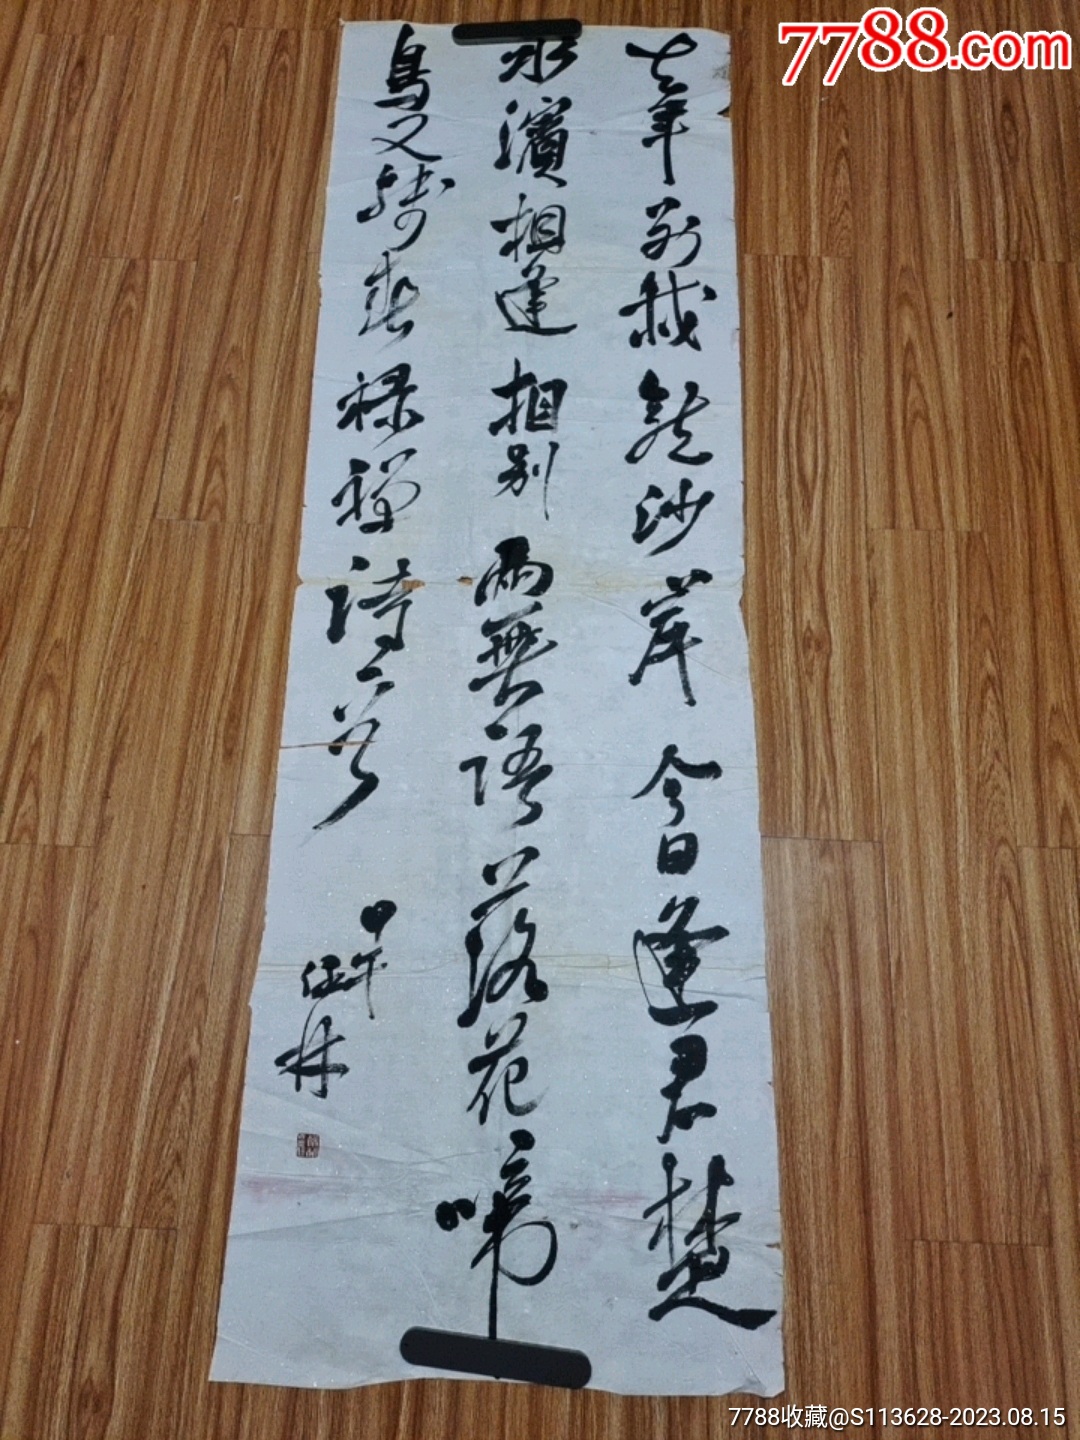 7788.com
去年别我龍沙岸今日逢君楚
水濱相逢相别兩無語落花啼
鳥又残春禄禅詩一首
甲午
林
7788收藏@S113628-2023.08.15